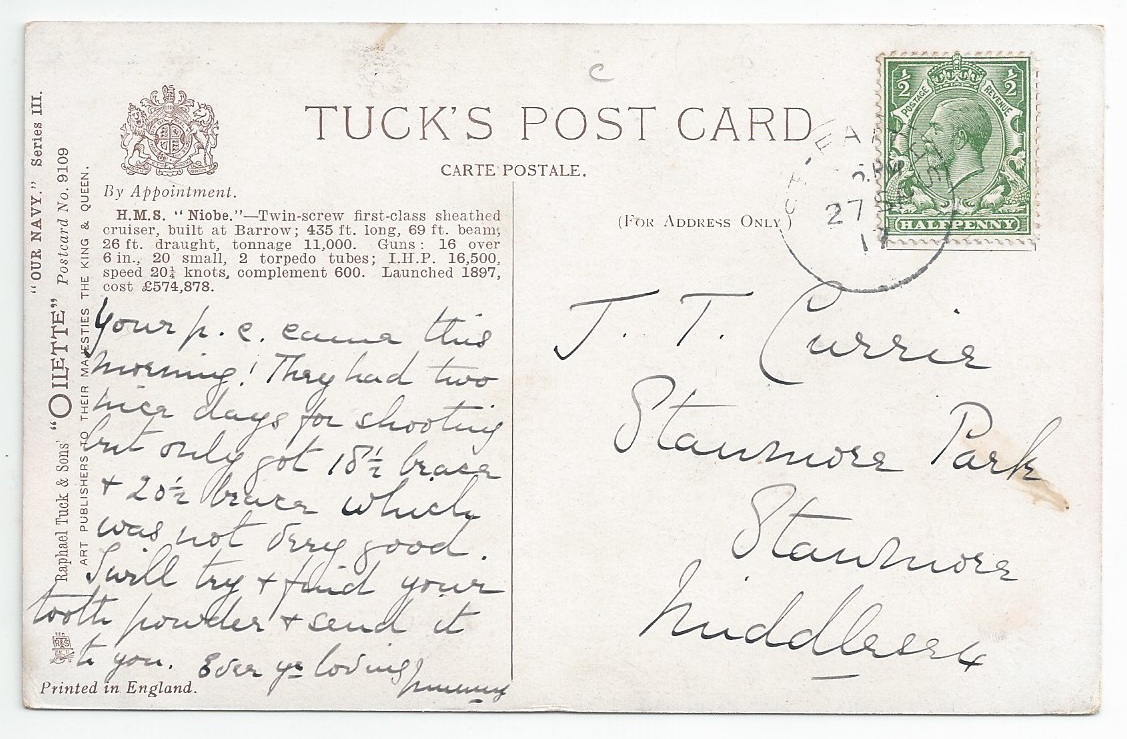 "OUR NAVY." Series III.
Raphael Tuck & Sons' "OILETTE" Postcard No. 9109
ART PUBLISHERS TO THEIR MAJESTIES THE KING & QUEEN.
By Appointment.
TUCK'S POST CARD
CARTE POSTALE.
(For Address Only)
½ ½
POSTAGE REVENUE
HALFPENNY
27
H.M.S. "Niobe."—Twin-screw first-class sheathed
cruiser, built at Barrow; 435 ft. long, 69 ft. beam;
26 ft. draught, tonnage 11,000. Guns: 16 over
6 in., 20 small, 2 torpedo tubes; I.H.P. 16,500,
speed 20¼ knots, complement 600. Launched 1897,
cost £574,878.
Your p.c. came this
morning! They had two
nice days for shooting
but only got 18½ brace
+ 20½ brace which
was not very good.
I will try + find your
tooth powder + send it
to you. Ever yr loving
J. T. Currie
Stanmore Park
Stanmore
Middlesex
Printed in England.